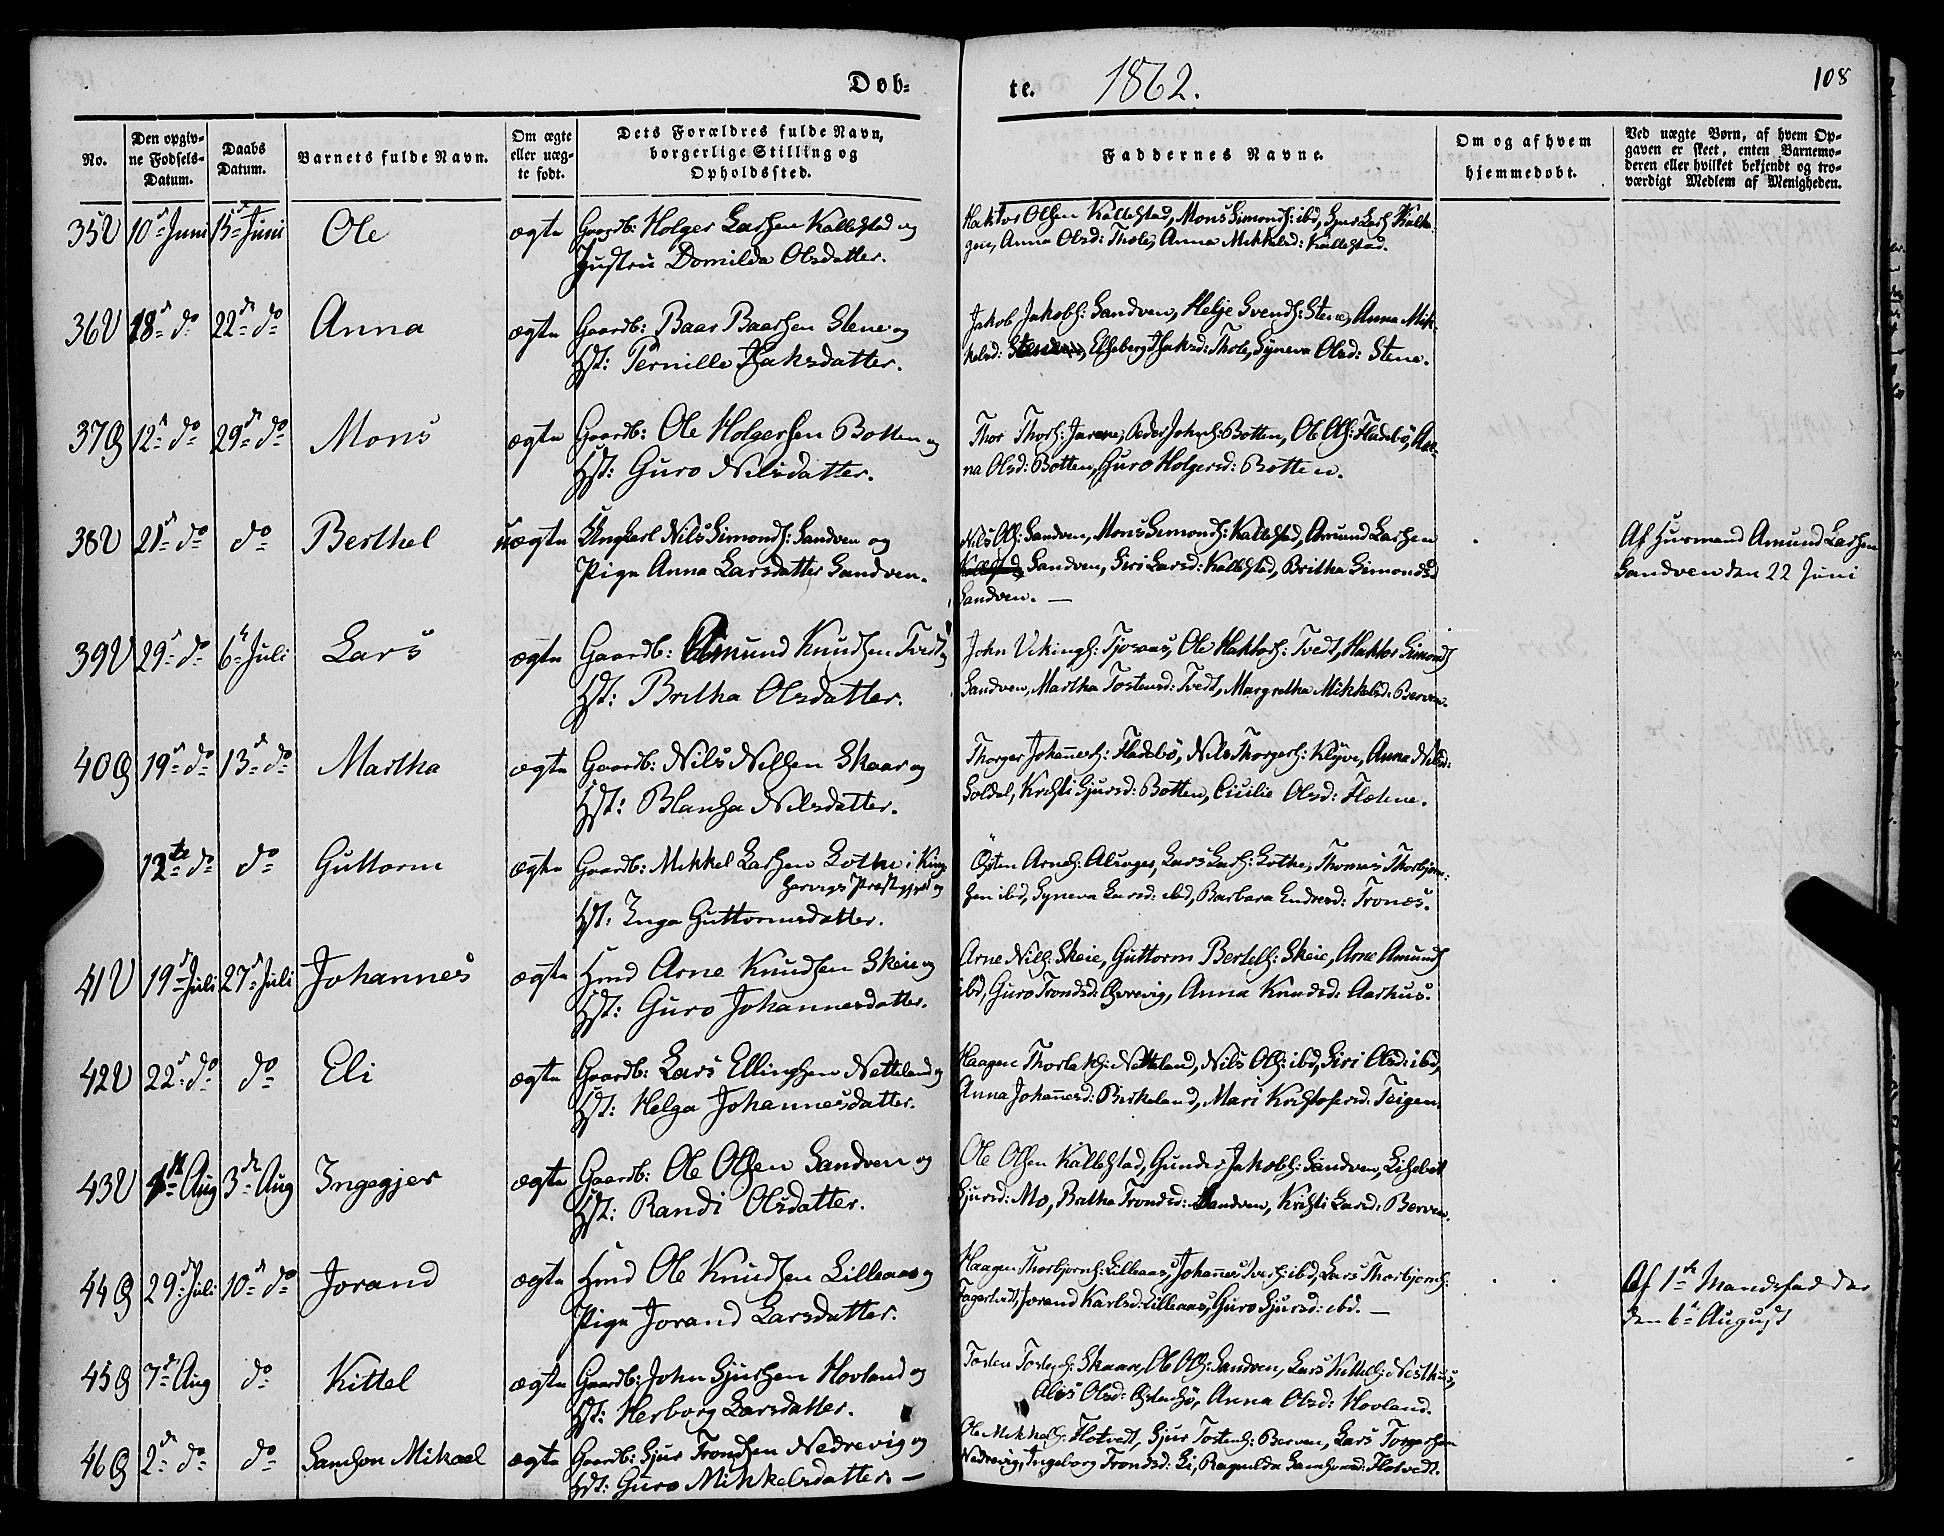 Døb-
te. 1862. 108
No. Den opgivne Fødsels-Datum. Daabs Datum. Barnets fulde Navn. Om ægte eller uægte født. Dets Forældres fulde Navn, borgerlige Stilling og Opholdssted. Faddernes Navne. Om og af hvem hjemmedøbt. Ved uægte Børn, af hvem Opgaven er skeet, enten Barnemoderen eller hvilket bekjendt og troværdigt Medlem af Menigheden.
35 10 Juni 15 Juni Ole ægte Gaardb: Holger Larsen Kallestad og
Hustru Domilda Olsdatter.
Haktor Olsen Kallestad, Mons Simonds: ibd,
Anna Olsd: Thole, Anna Mikkelsd: Kallestad.
36 18 do 22 do Anna ægte Gaardb: Baar Baarsen Stene og
Hst: Pernille Isaksdatter.
Jakob Jakobs: Sandven, Helje Svends: Stene, Anna Mik-
kelsd: Elseberg Isaksd: Thole, Syneva Olsd: Stene.
37 12 do 29 do Mons ægte Gaardb: Ole Holgersen Botten og
Hst: Guro Nilsdatter.
Thor Thors: Peder Johns: Botten, Ole Ols: Fladebø, An-
na Olsd: Botten, Guro Holgersd: Botten.
38 21 do do Berthel uægte Ungkarl Nils Simonds: Sandven og
Pige Anna Larsdatter Sandven.
Nils Ols: Sandven, Mons Simonds: Kallestad, Amund Larsen
Kallestad, Sandven, Siri Larsd: Kallestad, Britha Simondsd
Sandven. —
Af Husmand Amund Larsen
Sandven den 22 Juni
39 29 do 6 Juli Lars ægte Gaardb: Amund Knudsen Tvedt og
Hst: Britha Olsdatter.
John Vikings: Tjoraas, Ole Haktors: Tvedt, Haktor Simonds
Sandven, Martha Tostensd: Tvedt, Margretha Mikkelsd: Berven.
40 19 do 13 do Martha ægte Gaardb: Nils Nilsen Skaar og
Hst: Blansa Nilsdatter.
Thorger Johannes: Fladebø, Nils Thorgers: Klyve, Anna Nilsd:
Soldal, Kristi Sjursd: Botten, Cicilie Olsd: Flotene.
12te do do Guttorm ægte Gaardb: Mikkel Larsen Lothe i Kin-
servigs Præstegjeld og
Hst: Inga Guttormsdatter.
Østen Arnes: Alsager, Lars Lars: Lothe, Thomas Thorbjørn-
sen ibd, Syneva Larsd: ibd, Barbara Endresd: Tronæs.
41 19 Juli 27 Juli Johannes ægte Hmd Arne Knudsen Skeie og
Hst: Guro Johannesdatter.
Arne Nils: Skeie, Guttorm Bertels: Skeie, Arne Amunds
ibd, Guro Trondsd: Øvrevig, Anna Knudsd: Aarhus.
42 22 do do Eli ægte Gaardb: Lars Ellingsen Netteland og
Hst: Helga Johannesdatter.
Haagen Thorlaks: Netteland, Nils Ols: ibd, Siri Olsd: ibd,
Anna Johannesd: Birkeland, Mari Kristofersd: Teigen.
43 1st Aug 3 Aug Ingegjer ægte Gaardb: Ole Olsen Sandven og
Hst: Randi Olsdatter.
Ole Olsen Kallestad, Gunder Jakobs: Sandven, Lisebet
Sjursd: Mo, Britha Trondsd: Sandven, Kristi Larsd: Berven.
44 29 Juli 10 do Jorand ægte Hmd Ole Knudsen Lilleaas og
Pige Jorand Larsdatter.
Haagen Thorbjørns: Lilleaas, Johannes Ivers: ibd, Lars Thorbjørns:
Fagertvedt, Jorand Karlsd: Lilleaas, Guro Sjursd: ibd. —
Af 1ste Mandsfadder
den 6 August
45 7 Aug do Kittel ægte Gaardb: John Sjursen Hovland og
Hst: Herborg Larsdatter.
Tosten Tostens: Skaare, Ole Ols: Sandven, Lars Kittels: Nesthus,
Olsd: Anna Olsd: Hovland.
46 2 do do Samson Mikael ægte Gaardb: Sjur Trondsen Nedrevig og
Hst: Guro Mikkelsdatter. —
Ole Mikkels: Flotvedt, Sjur Tostens: Berven, Lars Torgersen
Nedrevig, Ingeborg Trondsd: Li, Ragnilda Samsonsd: Flotvedt.